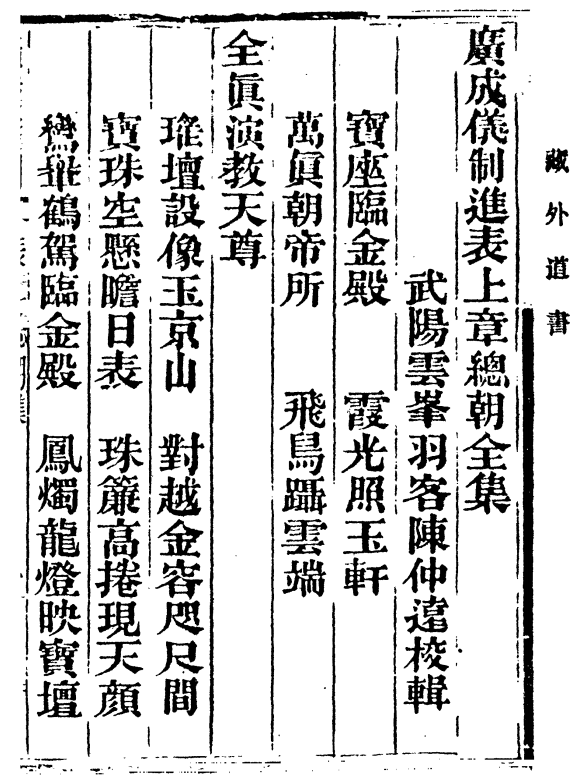 藏外道書
廣成儀制進表上章總朝全集
武陽雲峯羽客陳仲遠校輯
寶座臨金殿　霞光照玉軒
萬眞朝帝所　飛舄躡雲端
全眞演教天尊
瑤壇設像玉京山　對越金容咫尺間
寶珠空懸瞻日表　珠簾高捲現天顔
鸞輿鶴駕臨金殿　鳳燭龍燈映寶壇